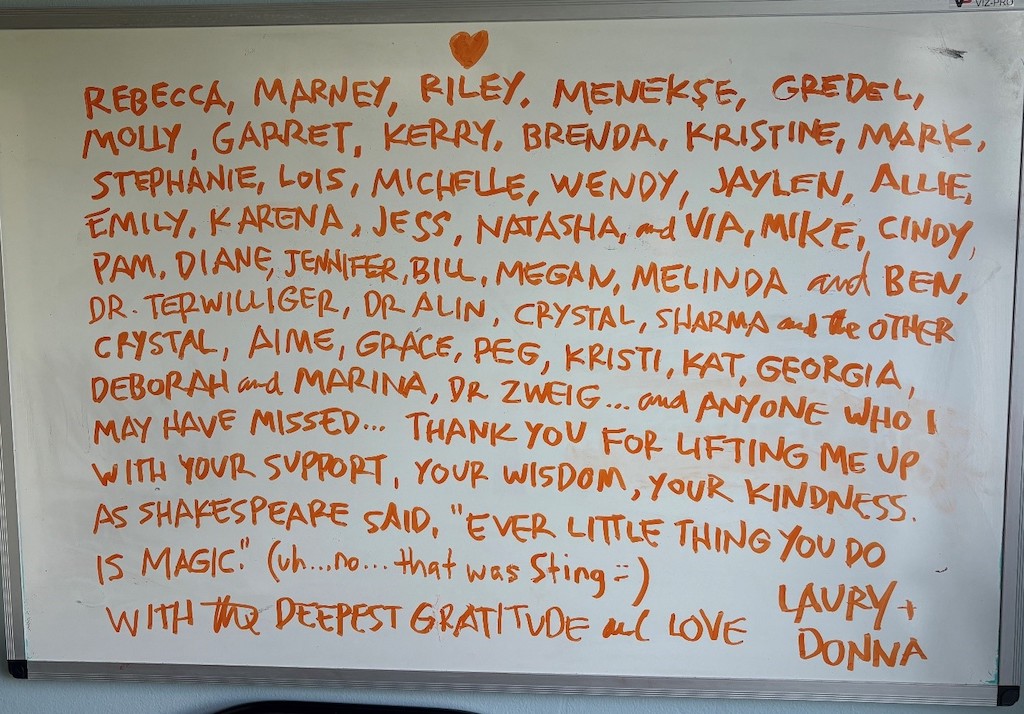 VIZ-PRO
REBECCA, MARNEY, RILEY, MENEKŞE, GREDEL,
MOLLY, GARRET, KERRY, BRENDA, KRISTINE, MARK,
STEPHANIE, LOIS, MICHELLE, WENDY, JAYLEN, ALLIE,
EMILY, KARENA, JESS, NATASHA, and VIA, MIKE, CINDY,
PAM, DIANE, JENNIFER, BILL, MEGAN, MELINDA and BEN,
DR. TERWILLIGER, DR ALIN, CRYSTAL, SHARMA and the OTHER
CRYSTAL, AIME, GRACE, PEG, KRISTI, KAT, GEORGIA,
DEBORAH and MARINA, DR ZWEIG... and ANYONE WHO I
MAY HAVE MISSED... THANK YOU FOR LIFTING ME UP
WITH YOUR SUPPORT, YOUR WISDOM, YOUR KINDNESS.
AS SHAKESPEARE SAID, "EVER LITTLE THING YOU DO
IS MAGIC." (uh...no...that was Sting =)
WITH the DEEPEST GRATITUDE and LOVE
LAURY +
DONNA